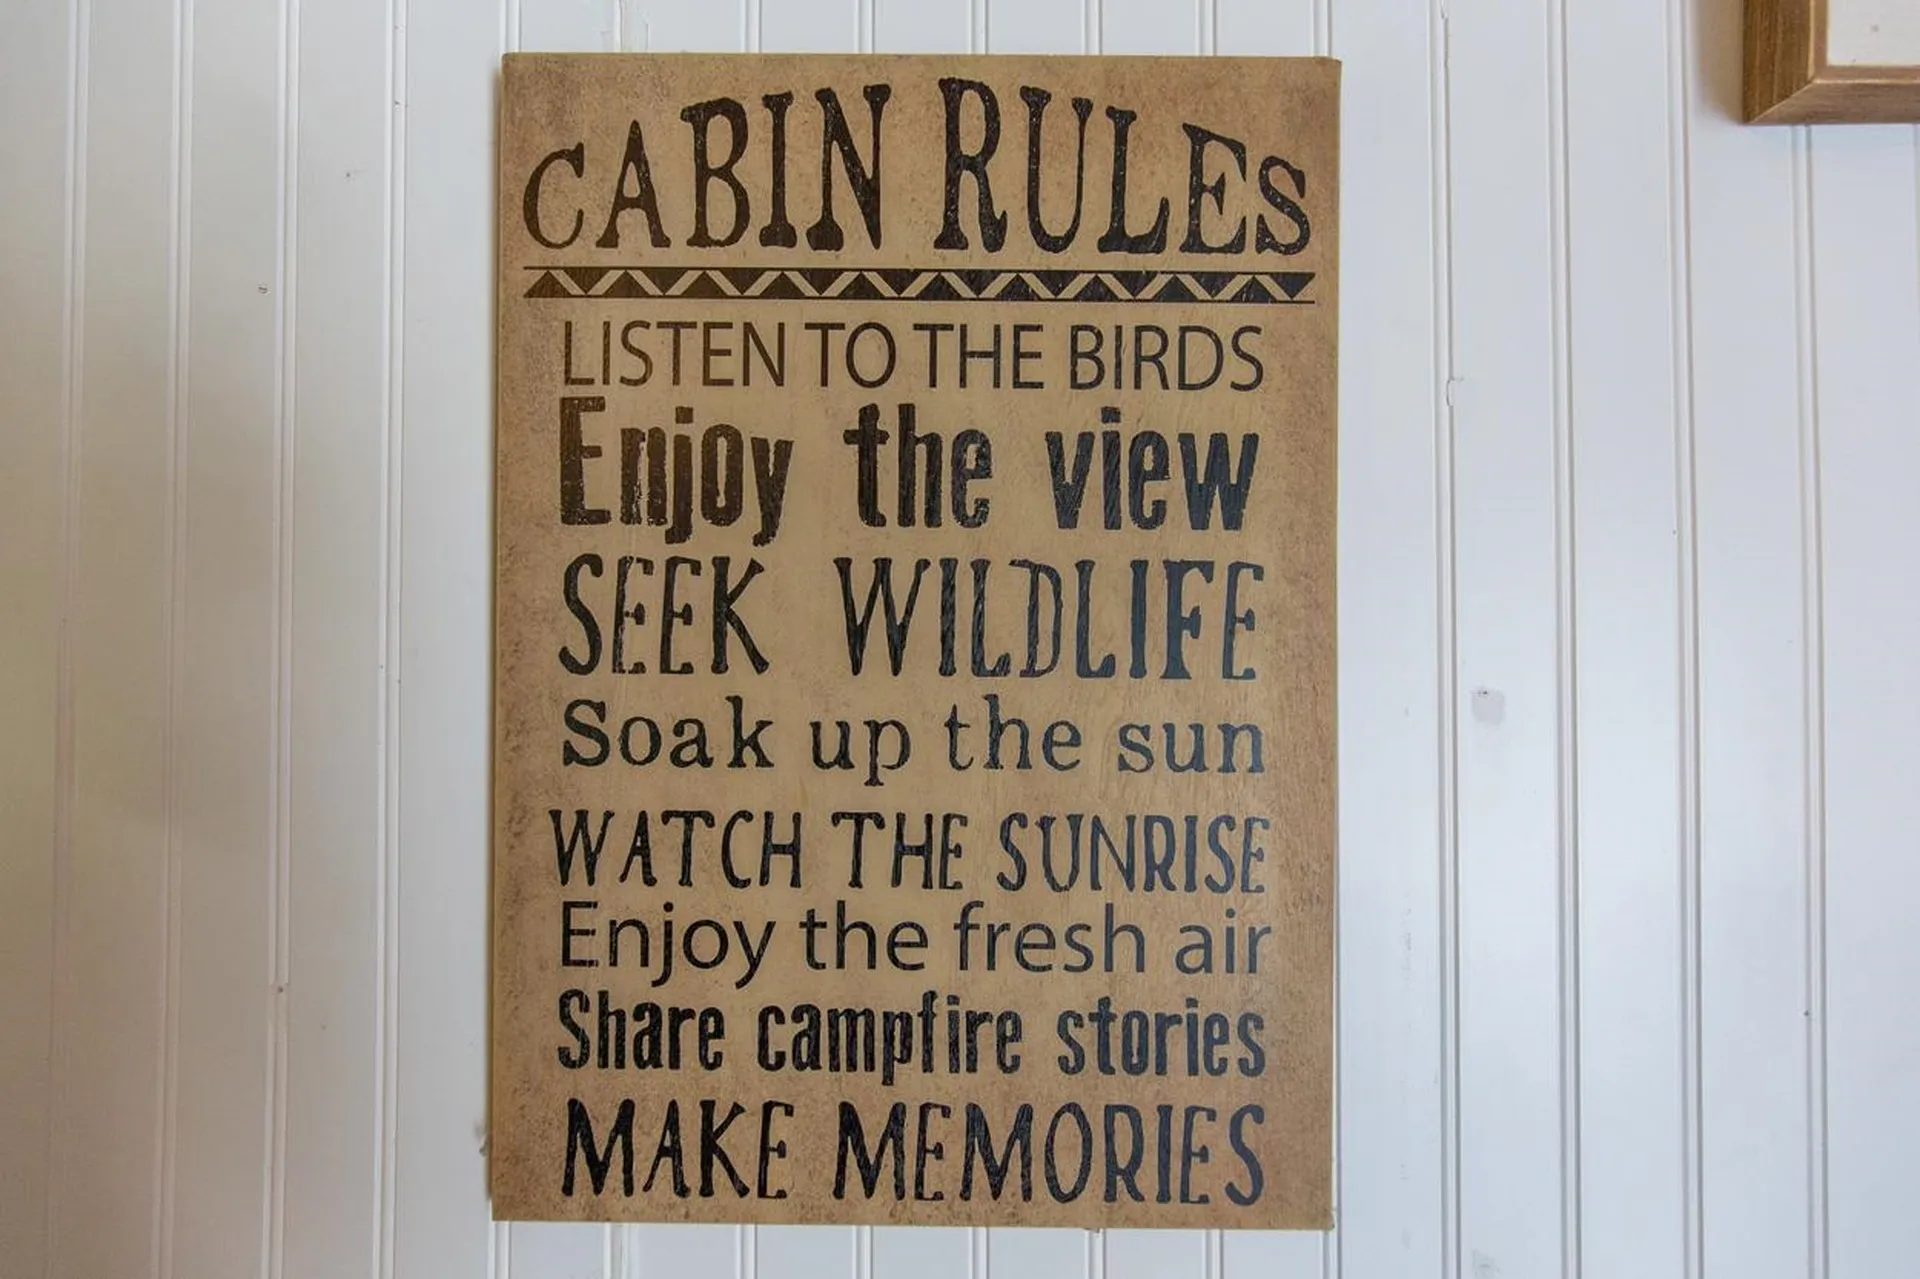 CABIN RULES
LISTEN TO THE BIRDS
Enjoy the view
SEEK WILDLIFE
Soak up the sun
WATCH THE SUNRISE
Enjoy the fresh air
Share campfire stories
MAKE MEMORIES